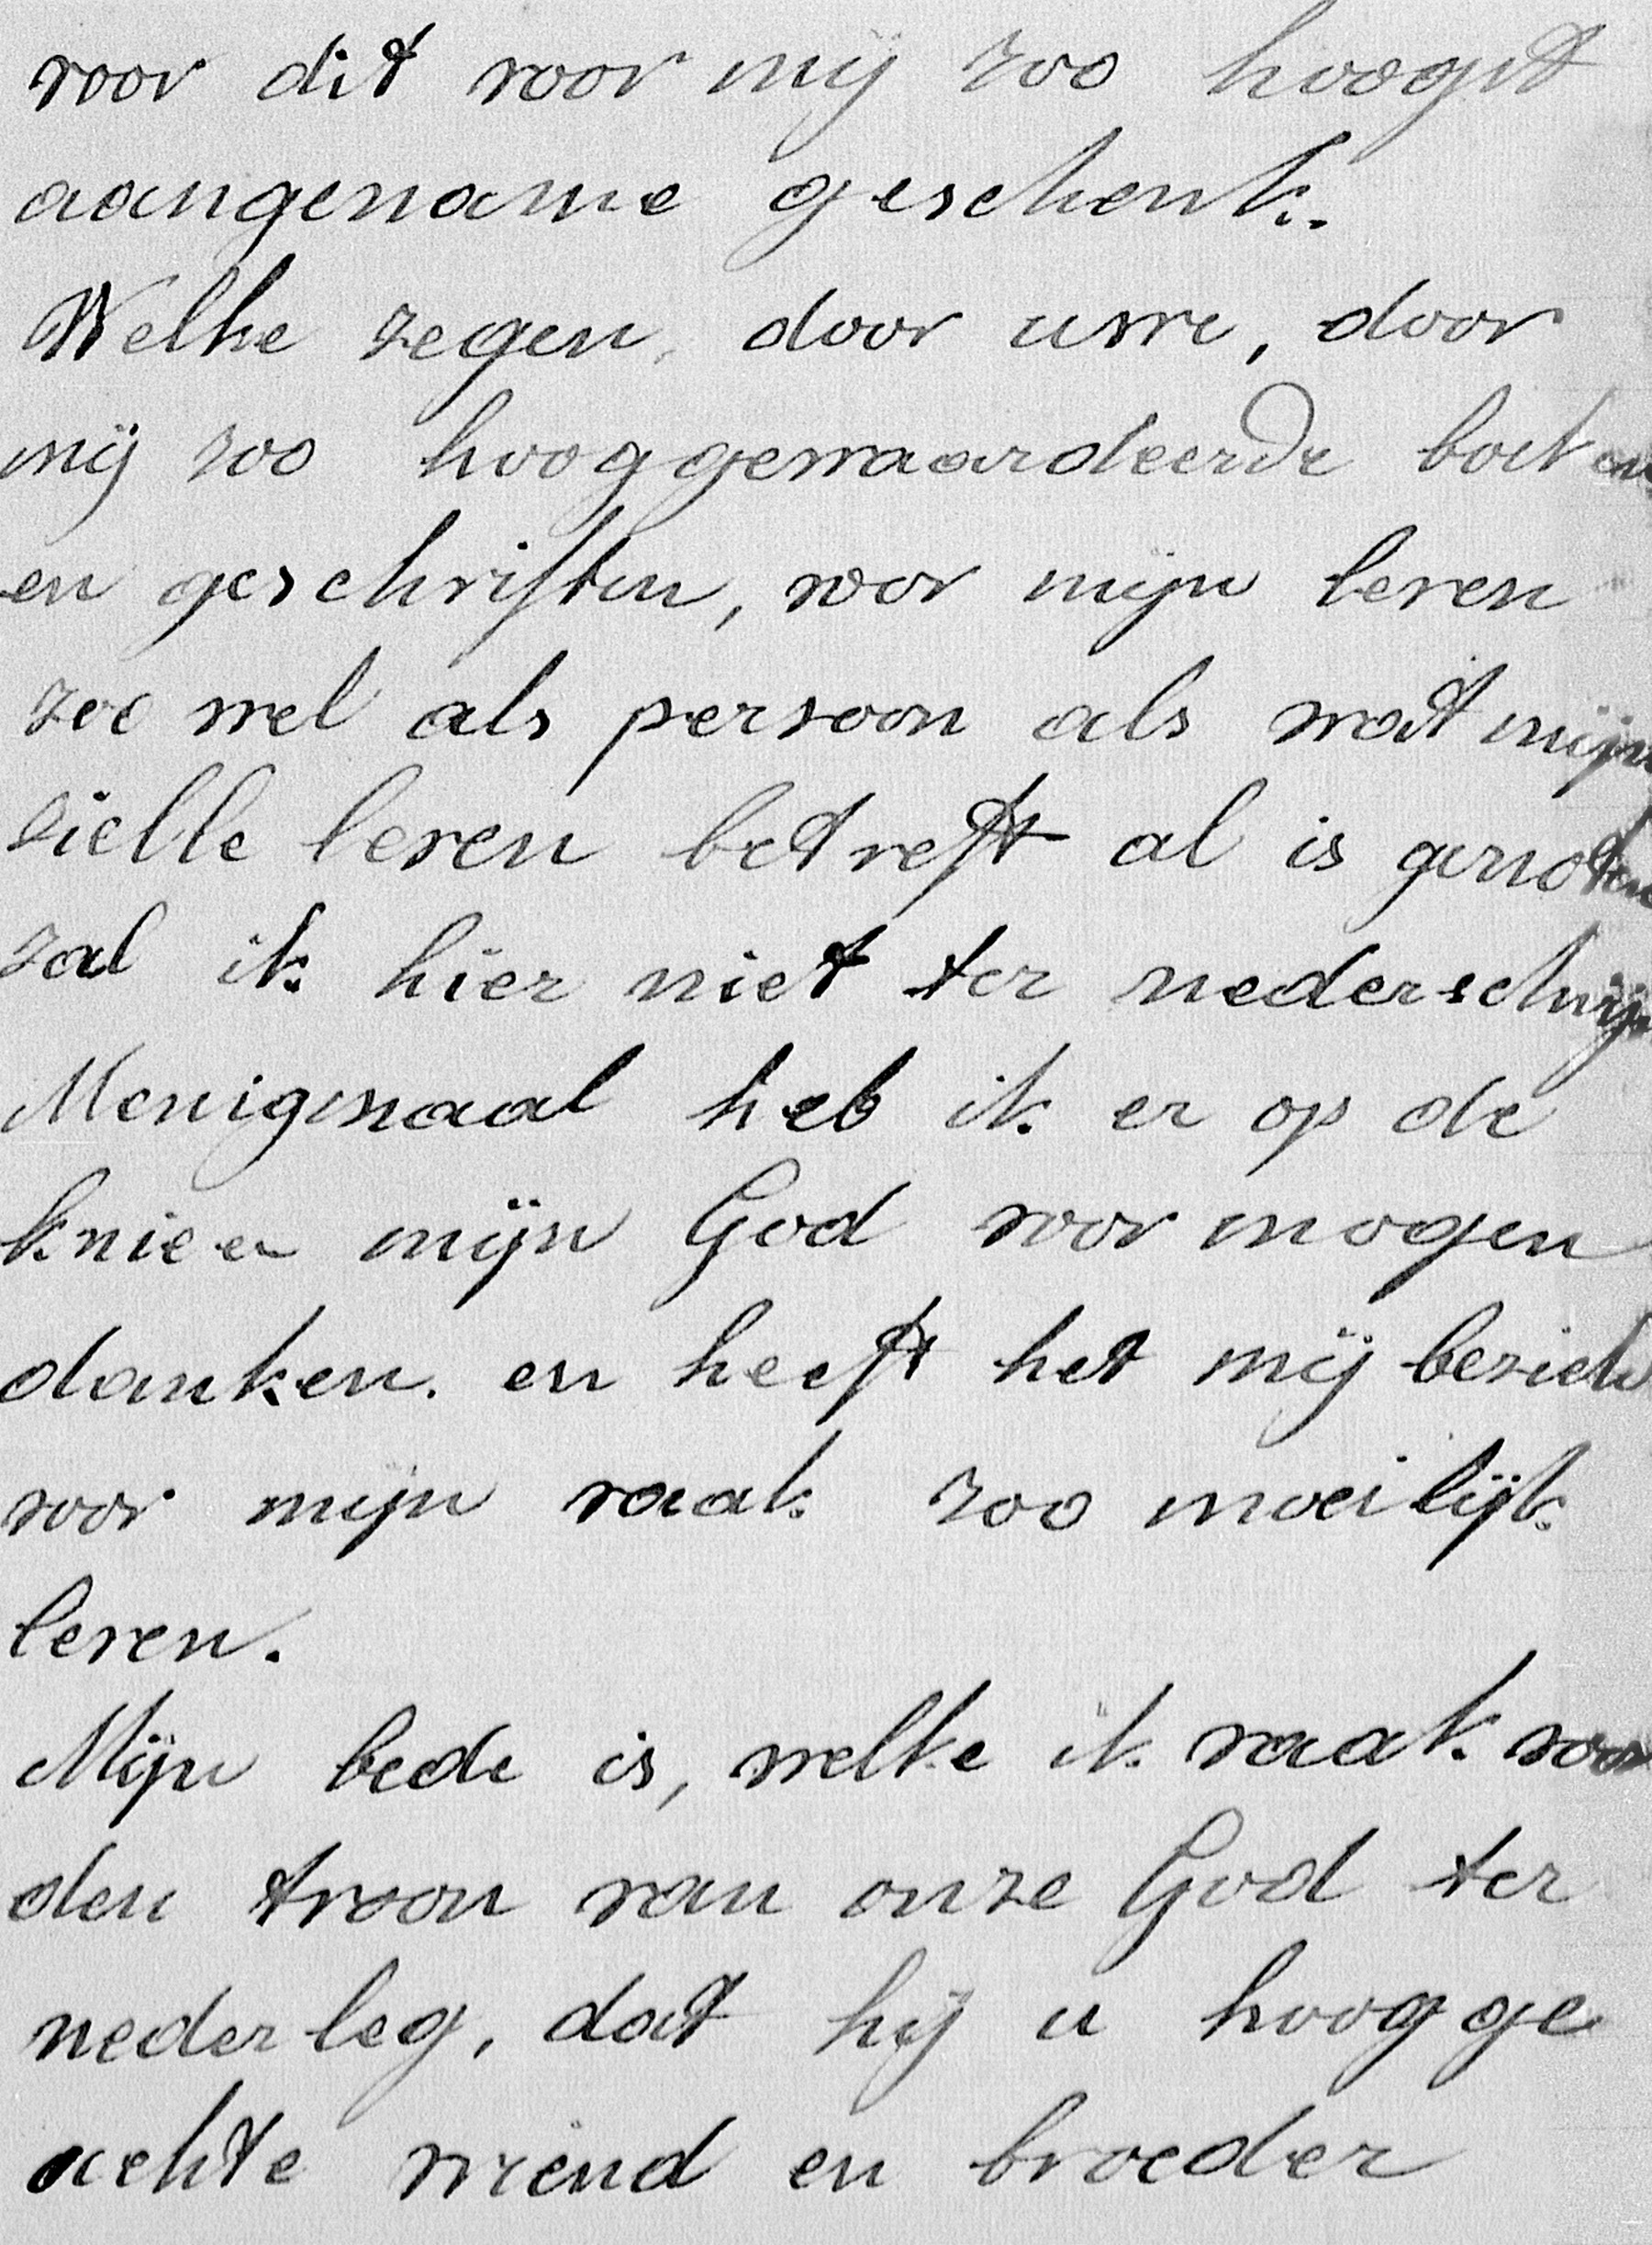 voor dit voor mij zoo hoogst
aangename geschenk.
Welke zegen, door uwe, door
mij zoo hooggewaardeerde boeken
en geschriften, voor mijn leven
zoo wel als persoon als wat mijn
zielle leven betreft al is genoten
zal ik hier niet ter nederschrij
Menigmaal heb ik er op de
knieen mijn God voor mogen
danken. en heeft het mij bezield
voor mijn vaak zoo moeilijk
leven.
Mijn bede is, welke ik vaak voor
den troon van onze God ter
neder leg, dat hij u hoog ge
achte vriend en broeder